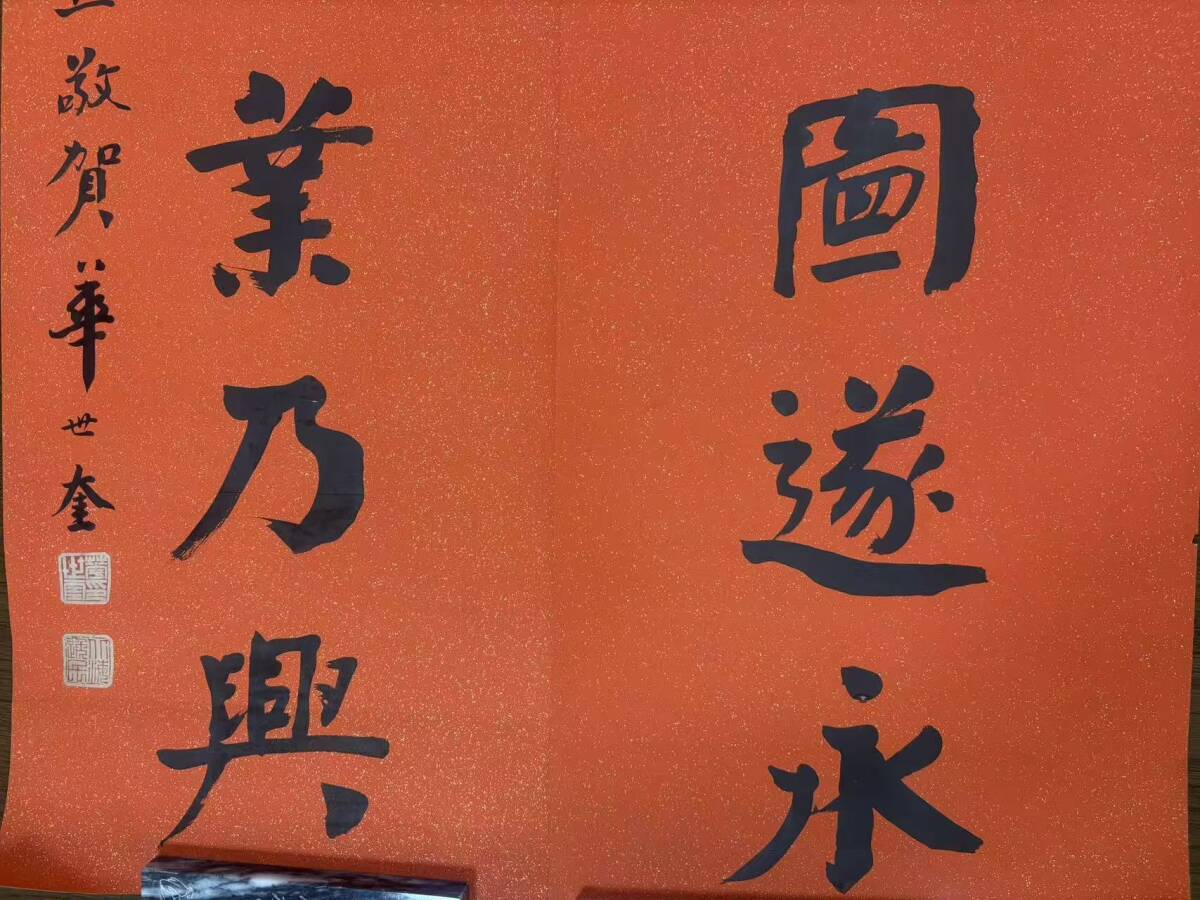 圖遂永
業乃興
敬賀華世奎